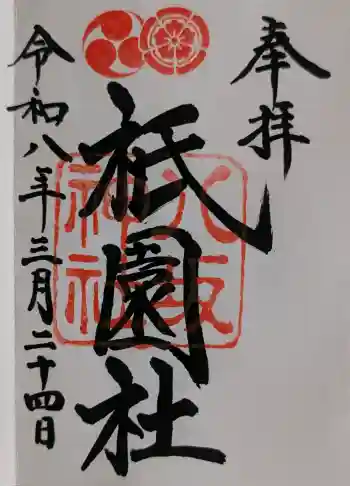 奉拝
八坂
神社
祇園社
令和八年三月二十四日